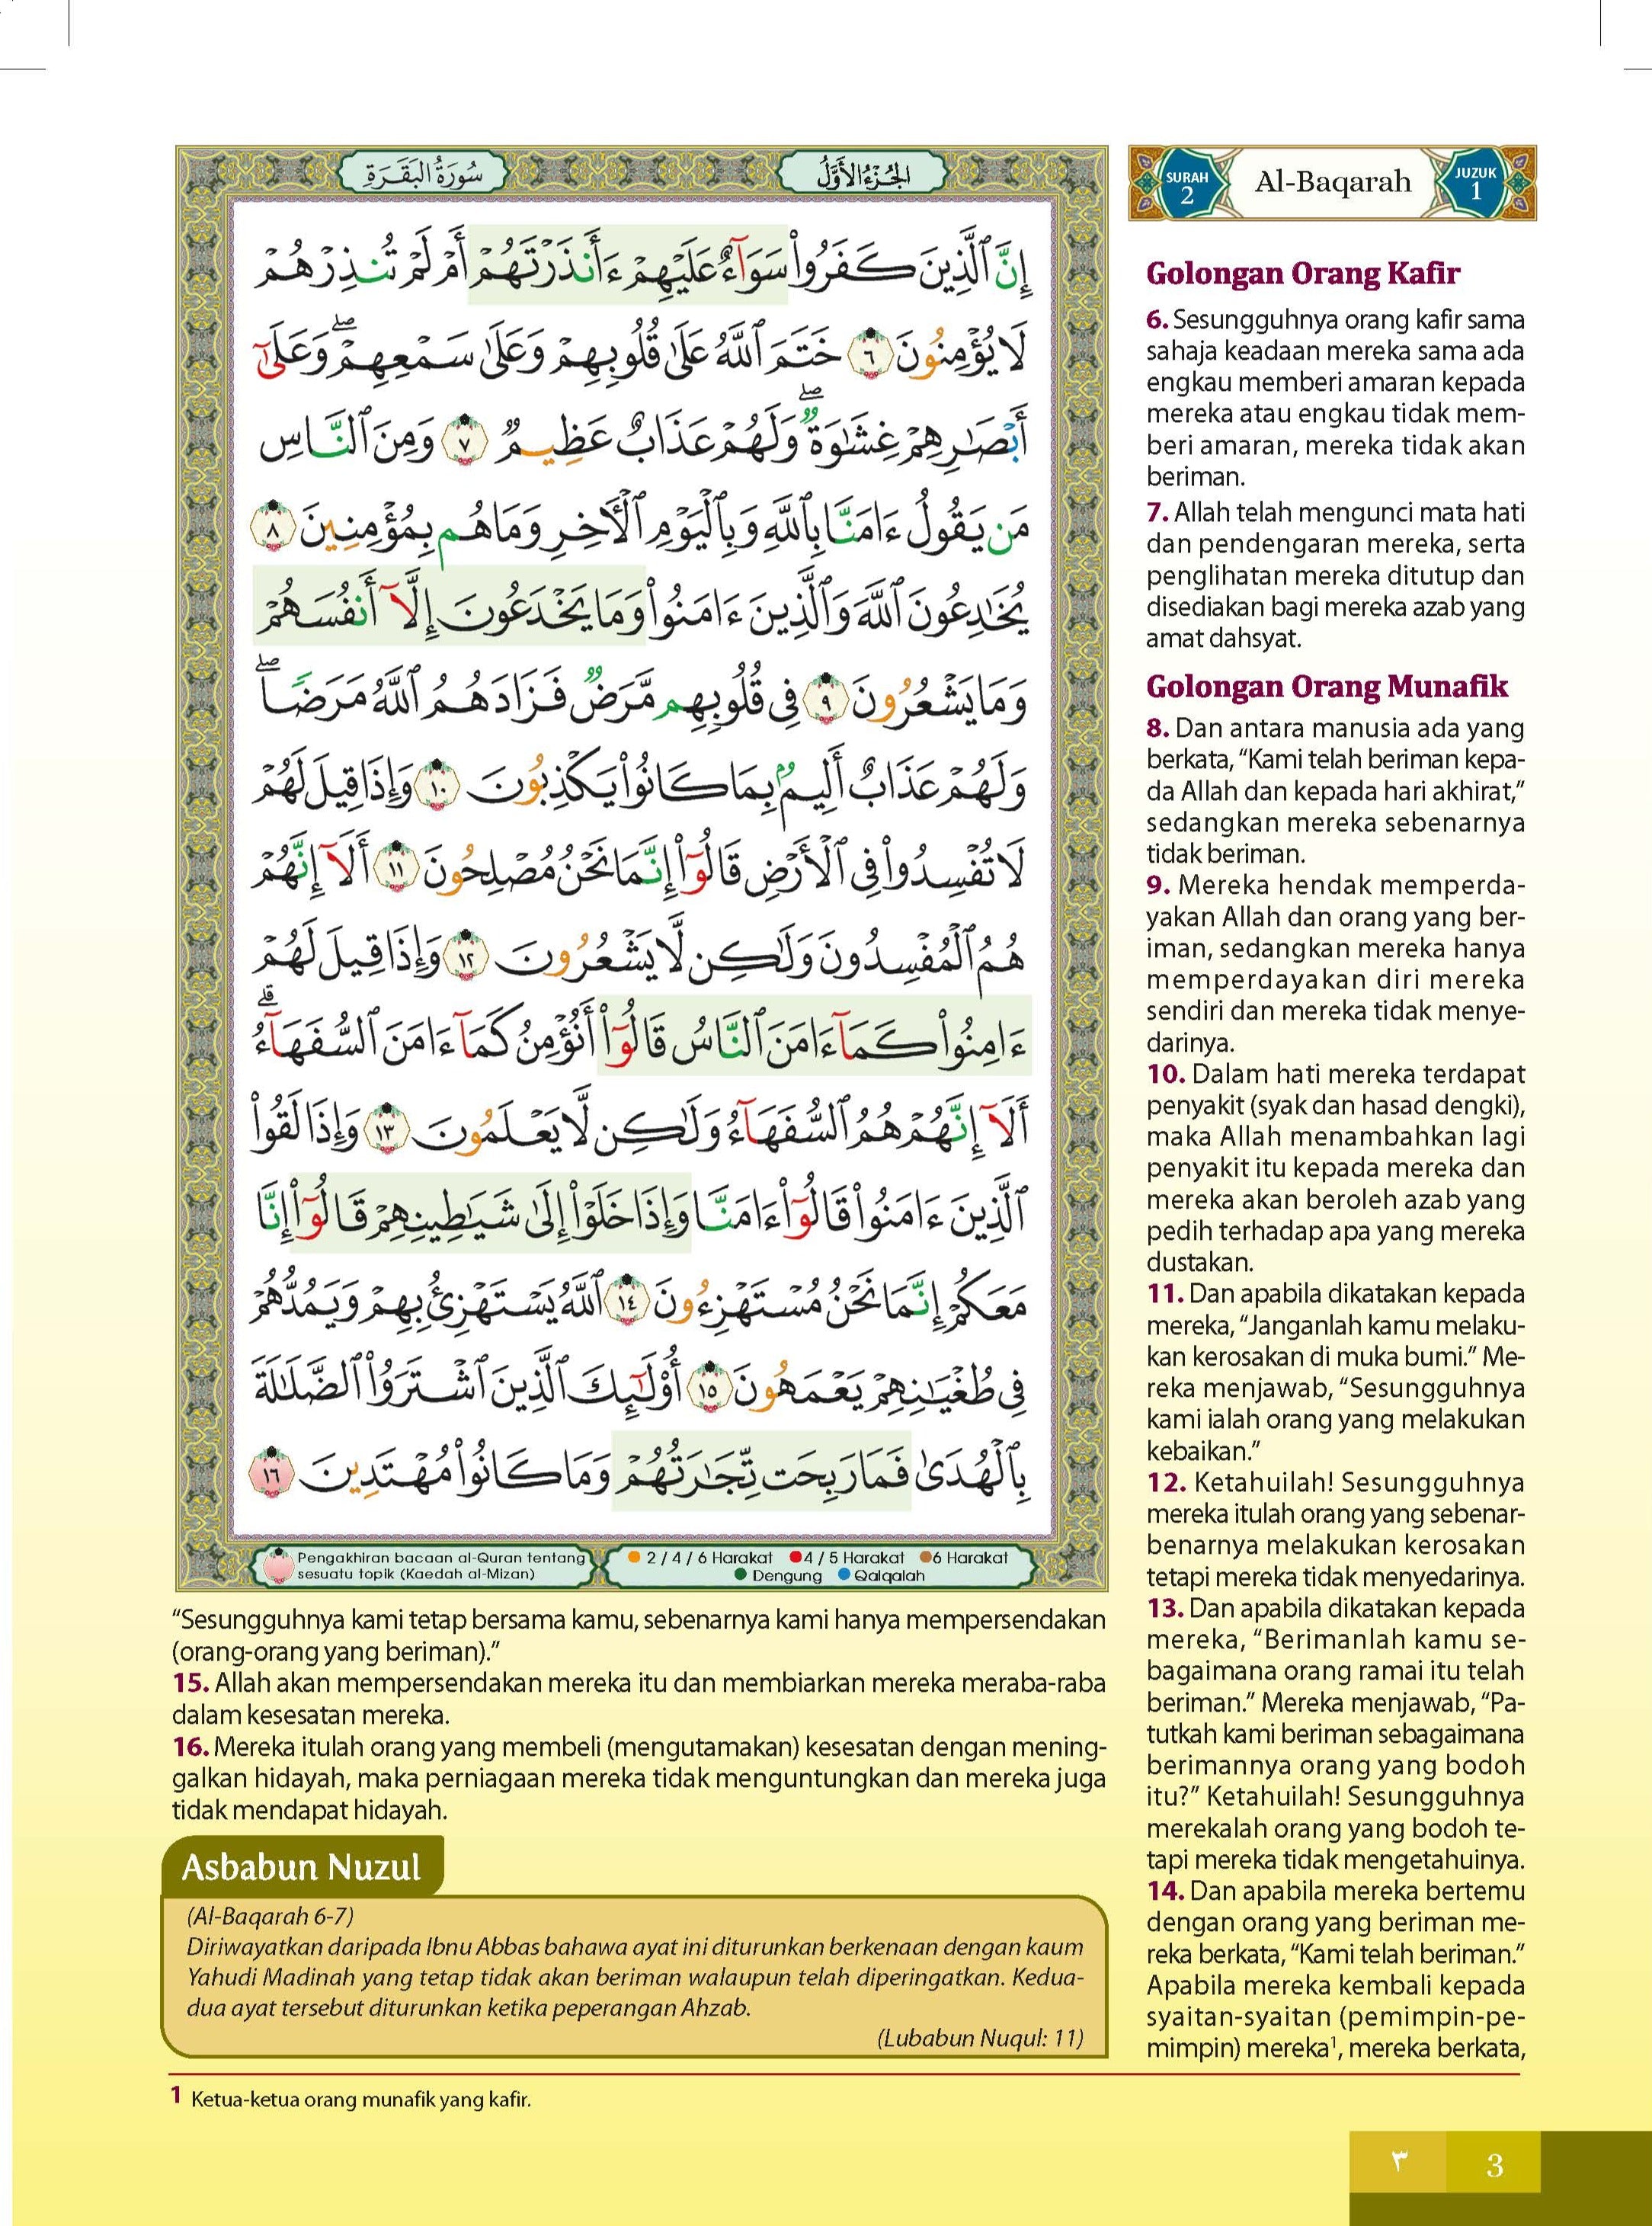 سُورَةُ الْبَقَرَةِ
الجُزْءُ الأَوَّلُ
إِنَّ ٱلَّذِينَ كَفَرُوا۟ سَوَآءٌ عَلَيْهِمْ ءَأَنذَرْتَهُمْ أَمْ لَمْ تُنذِرْهُمْ
لَا يُؤْمِنُونَ ٦ خَتَمَ ٱللَّهُ عَلَىٰ قُلُوبِهِمْ وَعَلَىٰ سَمْعِهِمْ ۖ وَعَلَىٰٓ
أَبْصَـٰرِهِمْ غِشَـٰوَةٌ ۖ وَلَهُمْ عَذَابٌ عَظِيمٌ ٧ وَمِنَ ٱلنَّاسِ
مَن يَقُولُ ءَامَنَّا بِٱللَّهِ وَبِٱلْيَوْمِ ٱلْـَٔاخِرِ وَمَا هُم بِمُؤْمِنِينَ ٨
يُخَـٰدِعُونَ ٱللَّهَ وَٱلَّذِينَ ءَامَنُوا۟ وَمَا يَخْدَعُونَ إِلَّآ أَنفُسَهُمْ
وَمَا يَشْعُرُونَ ٩ فِى قُلُوبِهِم مَّرَضٌ فَزَادَهُمُ ٱللَّهُ مَرَضًا ۖ
وَلَهُمْ عَذَابٌ أَلِيمٌۢ بِمَا كَانُوا۟ يَكْذِبُونَ ١٠ وَإِذَا قِيلَ لَهُمْ
لَا تُفْسِدُوا۟ فِى ٱلْأَرْضِ قَالُوٓا۟ إِنَّمَا نَحْنُ مُصْلِحُونَ ١١ أَلَآ إِنَّهُمْ
هُمُ ٱلْمُفْسِدُونَ وَلَـٰكِن لَّا يَشْعُرُونَ ١٢ وَإِذَا قِيلَ لَهُمْ
ءَامِنُوا۟ كَمَآ ءَامَنَ ٱلنَّاسُ قَالُوٓا۟ أَنُؤْمِنُ كَمَآ ءَامَنَ ٱلسُّفَهَآءُ ۗ
أَلَآ إِنَّهُمْ هُمُ ٱلسُّفَهَآءُ وَلَـٰكِن لَّا يَعْلَمُونَ ١٣ وَإِذَا لَقُوا۟
ٱلَّذِينَ ءَامَنُوا۟ قَالُوٓا۟ ءَامَنَّا وَإِذَا خَلَوْا۟ إِلَىٰ شَيَـٰطِينِهِمْ قَالُوٓا۟ إِنَّا
مَعَكُمْ إِنَّمَا نَحْنُ مُسْتَهْزِءُونَ ١٤ ٱللَّهُ يَسْتَهْزِئُ بِهِمْ وَيَمُدُّهُمْ
فِى طُغْيَـٰنِهِمْ يَعْمَهُونَ ١٥ أُو۟لَـٰٓئِكَ ٱلَّذِينَ ٱشْتَرَوُا۟ ٱلضَّلَـٰلَةَ
بِٱلْهُدَىٰ فَمَا رَبِحَت تِّجَـٰرَتُهُمْ وَمَا كَانُوا۟ مُهْتَدِينَ ١٦
Pengakhiran bacaan al-Quran tentang
sesuatu topik (Kaedah al-Mizan)
2 / 4 / 6 Harakat 4 / 5 Harakat 6 Harakat
Dengung Qalqalah
SURAH
2
Al-Baqarah
JUZUK
1
Golongan Orang Kafir
6. Sesungguhnya orang kafir sama
sahaja keadaan mereka sama ada
engkau memberi amaran kepada
mereka atau engkau tidak mem-
beri amaran, mereka tidak akan
beriman.
7. Allah telah mengunci mata hati
dan pendengaran mereka, serta
penglihatan mereka ditutup dan
disediakan bagi mereka azab yang
amat dahsyat.
Golongan Orang Munafik
8. Dan antara manusia ada yang
berkata, “Kami telah beriman kepa-
da Allah dan kepada hari akhirat,”
sedangkan mereka sebenarnya
tidak beriman.
9. Mereka hendak memperda-
yakan Allah dan orang yang ber-
iman, sedangkan mereka hanya
memperdayakan diri mereka
sendiri dan mereka tidak menye-
darinya.
10. Dalam hati mereka terdapat
penyakit (syak dan hasad dengki),
maka Allah menambahkan lagi
penyakit itu kepada mereka dan
mereka akan beroleh azab yang
pedih terhadap apa yang mereka
dustakan.
11. Dan apabila dikatakan kepada
mereka, “Janganlah kamu melaku-
kan kerosakan di muka bumi.” Me-
reka menjawab, “Sesungguhnya
kami ialah orang yang melakukan
kebaikan.”
12. Ketahuilah! Sesungguhnya
mereka itulah orang yang sebenar-
benarnya melakukan kerosakan
tetapi mereka tidak menyedarinya.
13. Dan apabila dikatakan kepada
mereka, “Berimanlah kamu se-
bagaimana orang ramai itu telah
beriman.” Mereka menjawab, “Pa-
tutkah kami beriman sebagaimana
berimannya orang yang bodoh
itu?” Ketahuilah! Sesungguhnya
merekalah orang yang bodoh te-
tapi mereka tidak mengetahuinya.
14. Dan apabila mereka bertemu
dengan orang yang beriman me-
reka berkata, “Kami telah beriman.”
Apabila mereka kembali kepada
syaitan-syaitan (pemimpin-pe-
mimpin) mereka¹, mereka berkata,
“Sesungguhnya kami tetap bersama kamu, sebenarnya kami hanya mempersendakan
(orang-orang yang beriman).”
15. Allah akan mempersendakan mereka itu dan membiarkan mereka meraba-raba
dalam kesesatan mereka.
16. Mereka itulah orang yang membeli (mengutamakan) kesesatan dengan mening-
galkan hidayah, maka perniagaan mereka tidak menguntungkan dan mereka juga
tidak mendapat hidayah.
Asbabun Nuzul
(Al-Baqarah 6-7)
Diriwayatkan daripada Ibnu Abbas bahawa ayat ini diturunkan berkenaan dengan kaum
Yahudi Madinah yang tetap tidak akan beriman walaupun telah diperingatkan. Kedua-
dua ayat tersebut diturunkan ketika peperangan Ahzab.
(Lubabun Nuqul: 11)
1 Ketua-ketua orang munafik yang kafir.
٣ 3